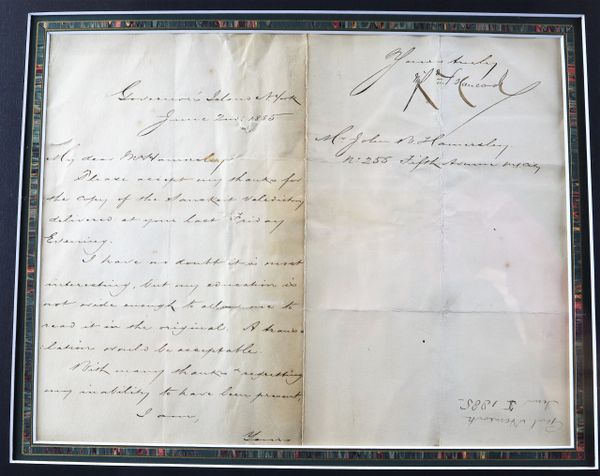 Governor's Island N. York
June 2nd 1885
My dear Mr Hamersley,
Please accept my thanks for
the copy of the Sanskrit Valedictory
delivered at your last Friday
Evening.
I have no doubt it is most
interesting, but my education is
not wide enough to allow me to
read it in the original. A trans-
lation would be acceptable.
With many thanks & regretting
my inability to have been present,
I am,
Yours
Yours truly
Winf'd S. Hancock
Mr John Hamersley
No 255 Fifth Avenue
1885